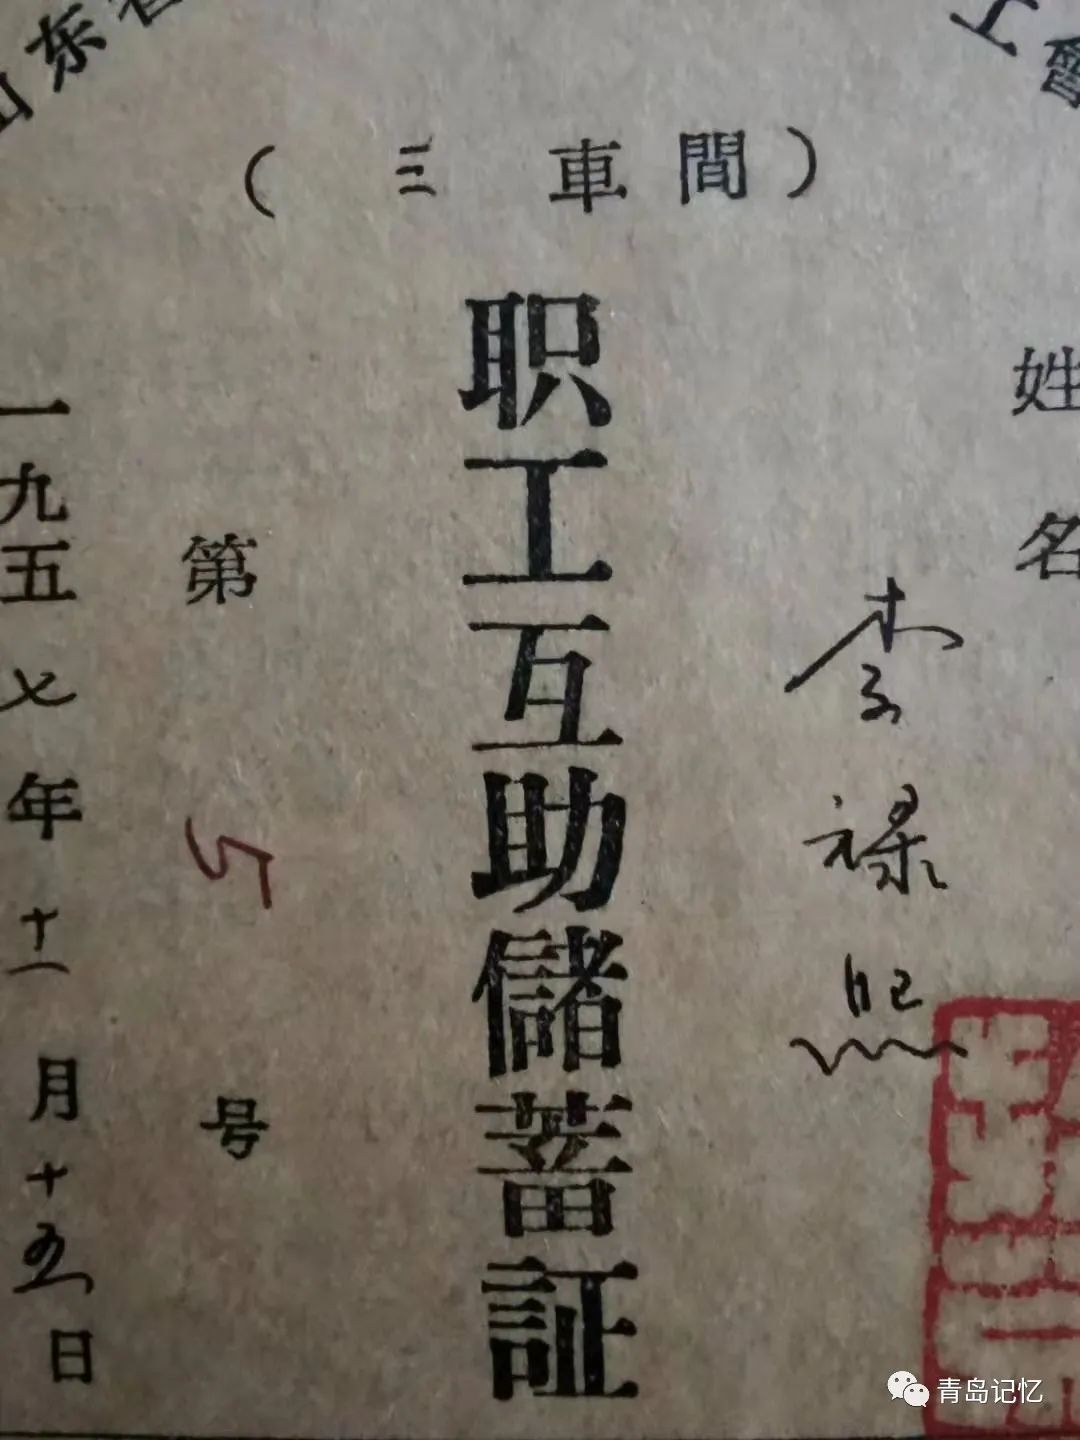 山东省
工會
（三車間）
姓名
李禄照
职工互助儲蓄証
第57号
一九五七年十一月十五日
青岛记忆